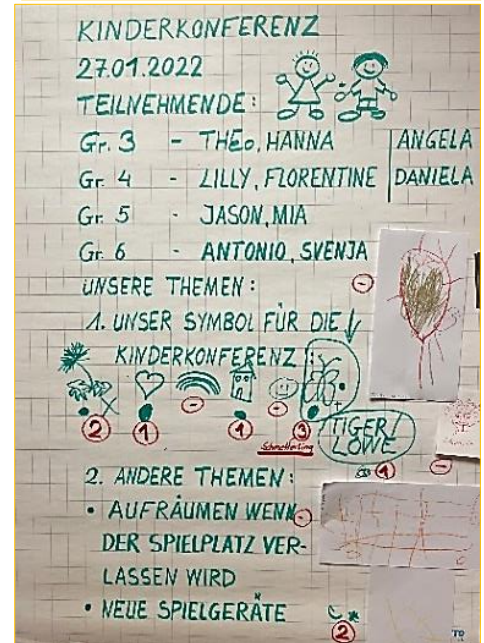 KINDERKONFERENZ
27.01.2022
TEILNEHMENDE:
Gr. 3 - THEO, HANNA ANGELA
Gr. 4 - LILLY, FLORENTINE DANIELA
Gr. 5 - JASON, MIA
Gr. 6 - ANTONIO, SVENJA
UNSERE THEMEN:
1. UNSER SYMBOL FÜR DIE
KINDERKONFERENZ:
2 1 - 1 - 3
Schmetterling
TIGER/
LÖWE
1
2. ANDERE THEMEN:
• AUFRÄUMEN WENN
DER SPIELPLATZ VER-
LASSEN WIRD
• NEUE SPIELGERÄTE
2